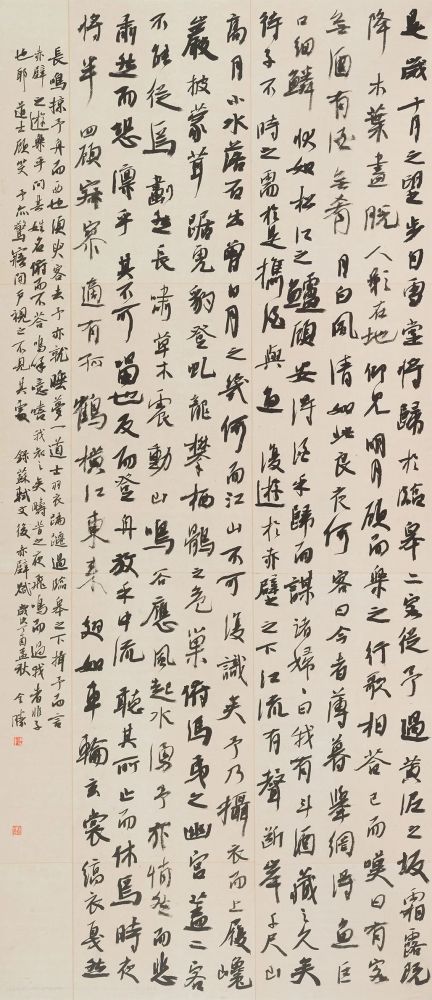 是歲十月之望步自雪堂將歸於臨皋二客從予過黃泥之坂霜露既
降木葉盡脫人影在地仰見明月顧而樂之行歌相答已而嘆曰有客
無酒有酒無肴月白風清如此良夜何客曰今者薄暮舉網得魚巨
口細鱗狀如松江之鱸顧安得酒乎歸而謀諸婦婦曰我有斗酒藏之久矣
待子不時之需於是攜酒與魚復遊於赤壁之下江流有聲斷岸千尺山
高月小水落石出曾日月之幾何而江山不可復識矣予乃攝衣而上履巉
巖披蒙茸踞虎豹登虬龍攀栖鶻之危巢俯馮夷之幽宮蓋二客
不能從焉劃然長嘯草木震動山鳴谷應風起水涌予亦悄然而悲
肅然而恐凜乎其不可留也反而登舟放乎中流聽其所止而休焉時夜
將半四顧寂寥適有孤鶴橫江東來翅如車輪玄裳縞衣戛然
長鳴掠予舟而西也須臾客去予亦就睡夢一道士羽衣蹁躚過臨皋之下揖予而言
赤壁之遊樂乎問其姓名俯而不答嗚呼噫嘻我知之矣疇昔之夜飛鳴而過我者非子
也耶道士顧笑予亦驚寤開戶視之不見其處 錄蘇軾文後赤壁賦 歲次丁酉孟秋